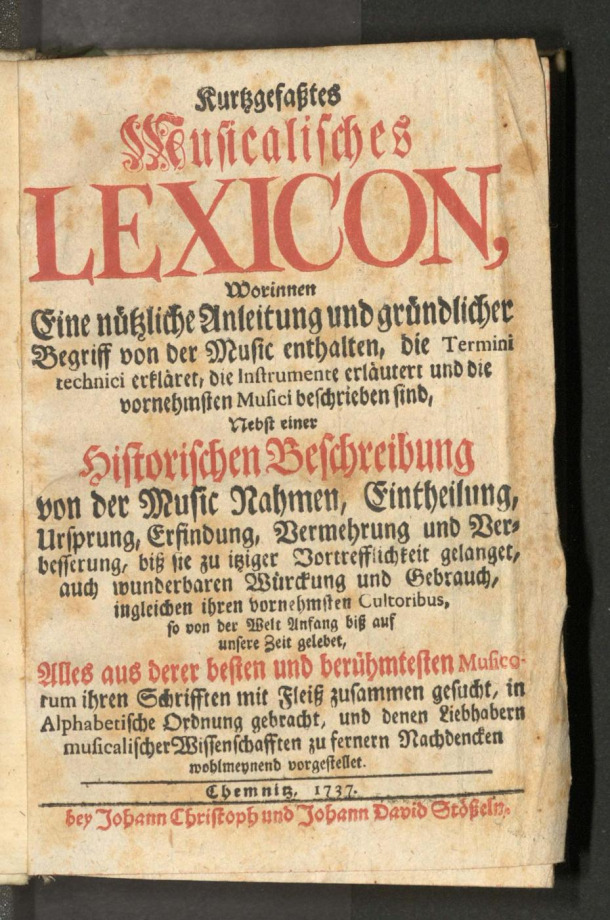 Kurtzgefaßtes
Musicalisches
LEXICON,
Worinnen
Eine nützliche Anleitung und gründlicher
Begriff von der Music enthalten, die Termini
technici erkläret, die Instrumente erläutert und die
vornehmsten Musici beschrieben sind,
Nebst einer
Historischen Beschreibung
von der Music Nahmen, Eintheilung,
Ursprung, Erfindung, Vermehrung und Ver-
besserung, biß sie zu itziger Vortrefflichkeit gelanget,
auch wunderbaren Würckung und Gebrauch,
ingleichen ihren vornehmsten Cultoribus,
so von der Welt Anfang biß auf
unsere Zeit gelebet,
Alles aus derer besten und berühmtesten Musico-
rum ihren Schrifften mit Fleiß zusammen gesucht, in
Alphabetische Ordnung gebracht, und denen Liebhabern
musicalischer Wissenschafften zu fernern Nachdencken
wohlmeynend vorgestellet.
Chemnitz, 1737.
bey Johann Christoph und Johann David Stößeln.